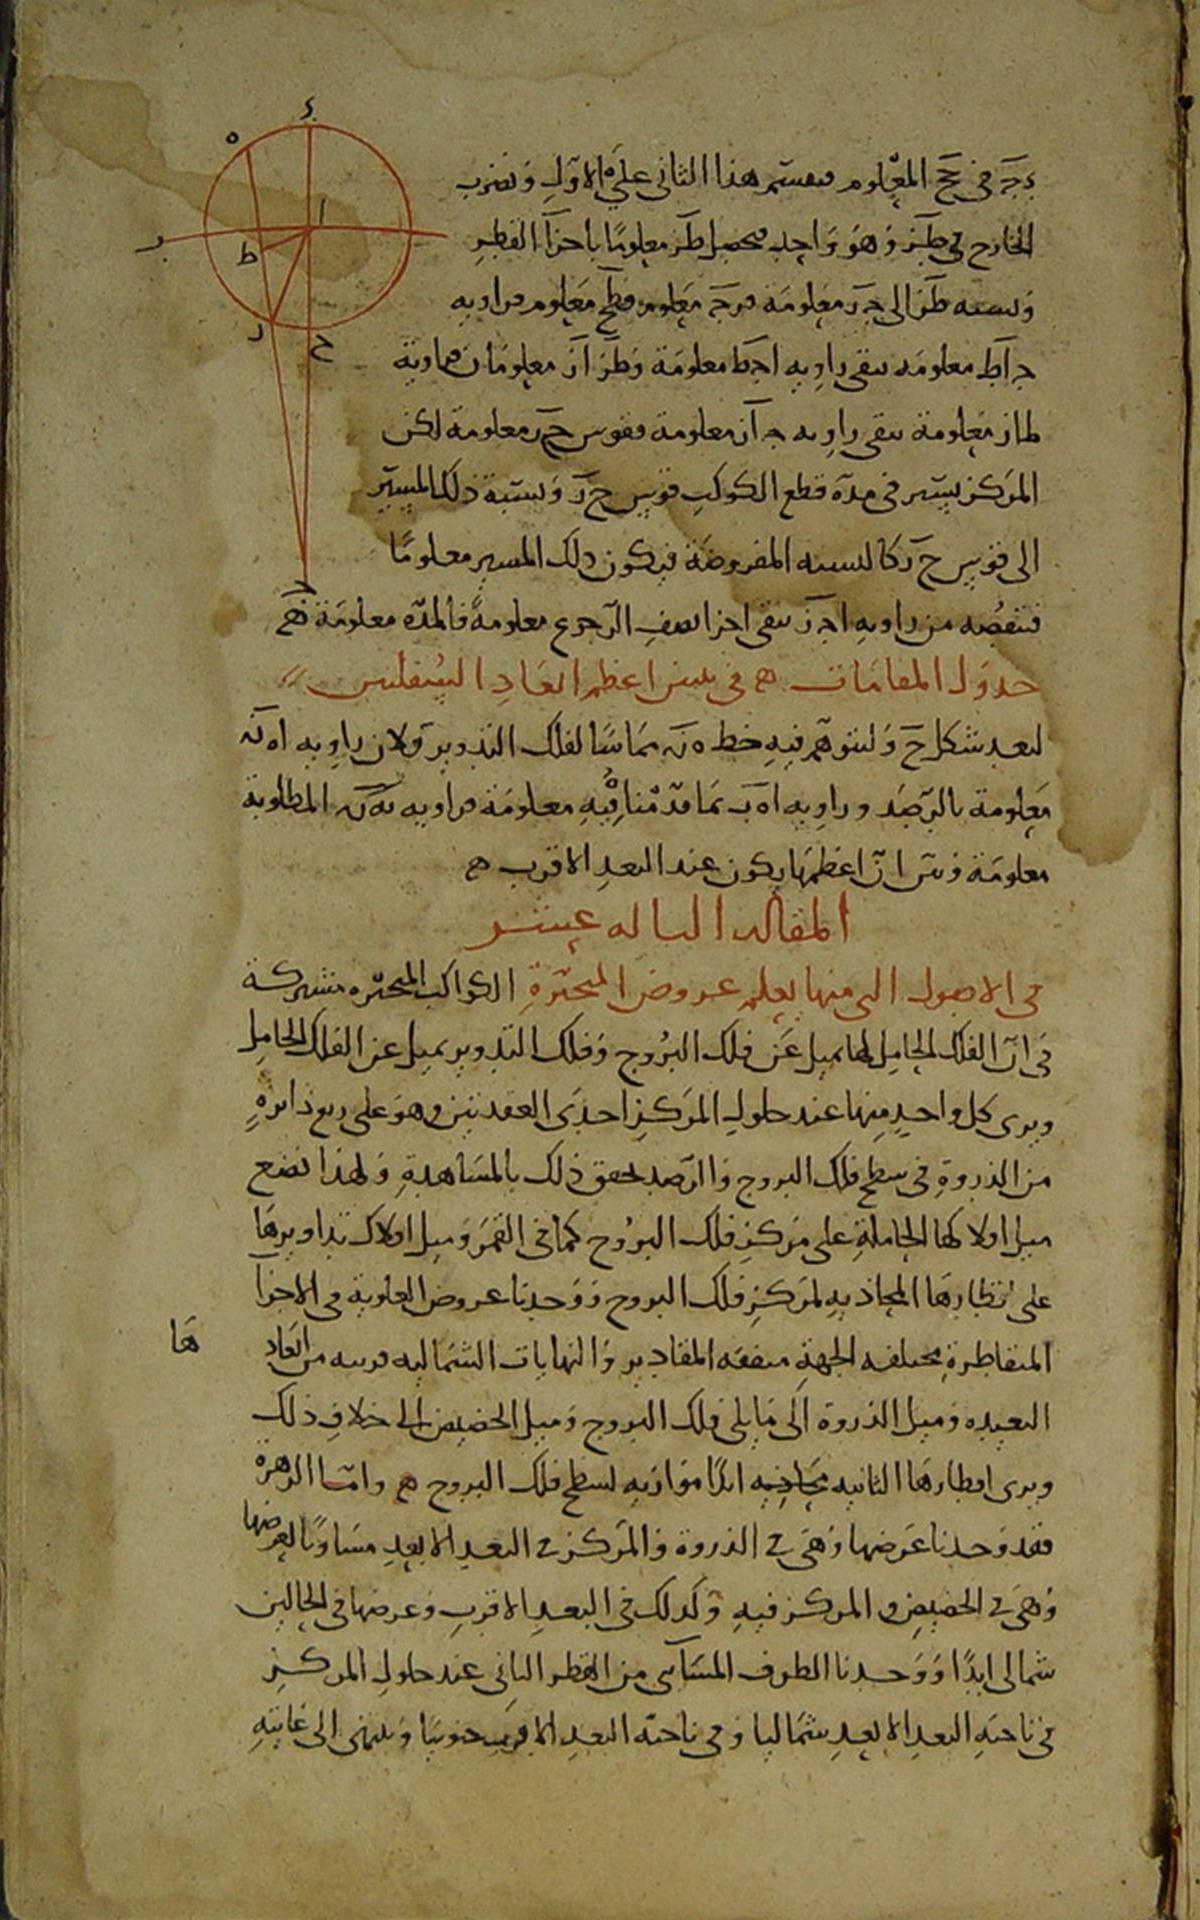 ء
ه
ا
ر
ط
د
ح
ج
ءجَ فى جَح المعلوم فنقسم هذا الثانى على الاول ونضرب
الخارج فى طَز وهو واحد فيحصل طَز معلومًا باجزآ القطرِ
ونسبه طَز الى جَز معلومة فزجَ معلوم فطَح معلوم فزاويه
جاَط معلومه يبقى زاويه اجط معلومة وطَز اَز معلومان فزاوية
طاز معلومة يبقى زاويه جاَز معلومة فقوس حَز معلومة لكن
المركز يسير فى مدة قطع الكوكب قوس حَز ونسبة ذلك المسير
الى قوس حَز كالنسبه المفروضة فيكون ذلك المسير معلومًا
فننقصه من زاويه اجز يبقى اجزا نصف الرجوع معلومةً فالمدة معلومة
جدول المقامات فى تبيين اعظم ابعاد السفليين
لبعد شكل حَ ولنتوهم فيه خط ه مماسًا لفلك التدوير ولان زاويه
معلومة بالرصد وزاويه اهَب بما قدمنا فيه معلومة فزاويه المطلوبة
معلومة وبين ان اعظمها يكون عند البعد الاقرب
المقاله الثالثه عشر
فى الاصول التى منها يعلم عروض المتحيرة الكواكب المتحيره مشتركة
فى ان الفلك الحامل لها يميل عن فلك البروج وفلك التدوير يميل عن الفلك الحامل
ويرى كل واحد منها عند حلول المركز احدى العقدتين وهو على ربع دائرةٍ
من الذروة فى سطح فلك البروج والرصد يحقق ذلك بالمشاهدة ولهذا نضع
ميل افلاكها الحاملة على مركز فلك البروج كما فى القمر وميل افلاك تداويرها
على اقطارها المحاذيه لمركز فلك البروج ووجدنا عروض العلوية فى الاجزآ
المتقاطرة مختلفه الجهة متفقه المقادير والنهايات الشماليه قريبه من ابعاد
ها
البعيده وميل الذروة الى ما يلى فلك البروج وميل الحضيض الى خلاف ذلك
ويرى اقطارها الثانيه ابدًا موازيه لسطح فلك البروج واما الزهرة
فقد وجدنا عرضها وهى فى الذروة والمركز فى البعد الابعد مساويًا لعرضها
وهى فى الحضيض والمركز فيه وكذلك فى البعد الاقرب وعرضها فى الحالين
شمالى ابدًا ووجدنا الطرف المسآئى من القطر الثانى عند حلول المركز
فى ناحيه البعد الابعد شماليا وفى ناحيه البعد الاقرب جنوبيًا وينتهى الى غايته